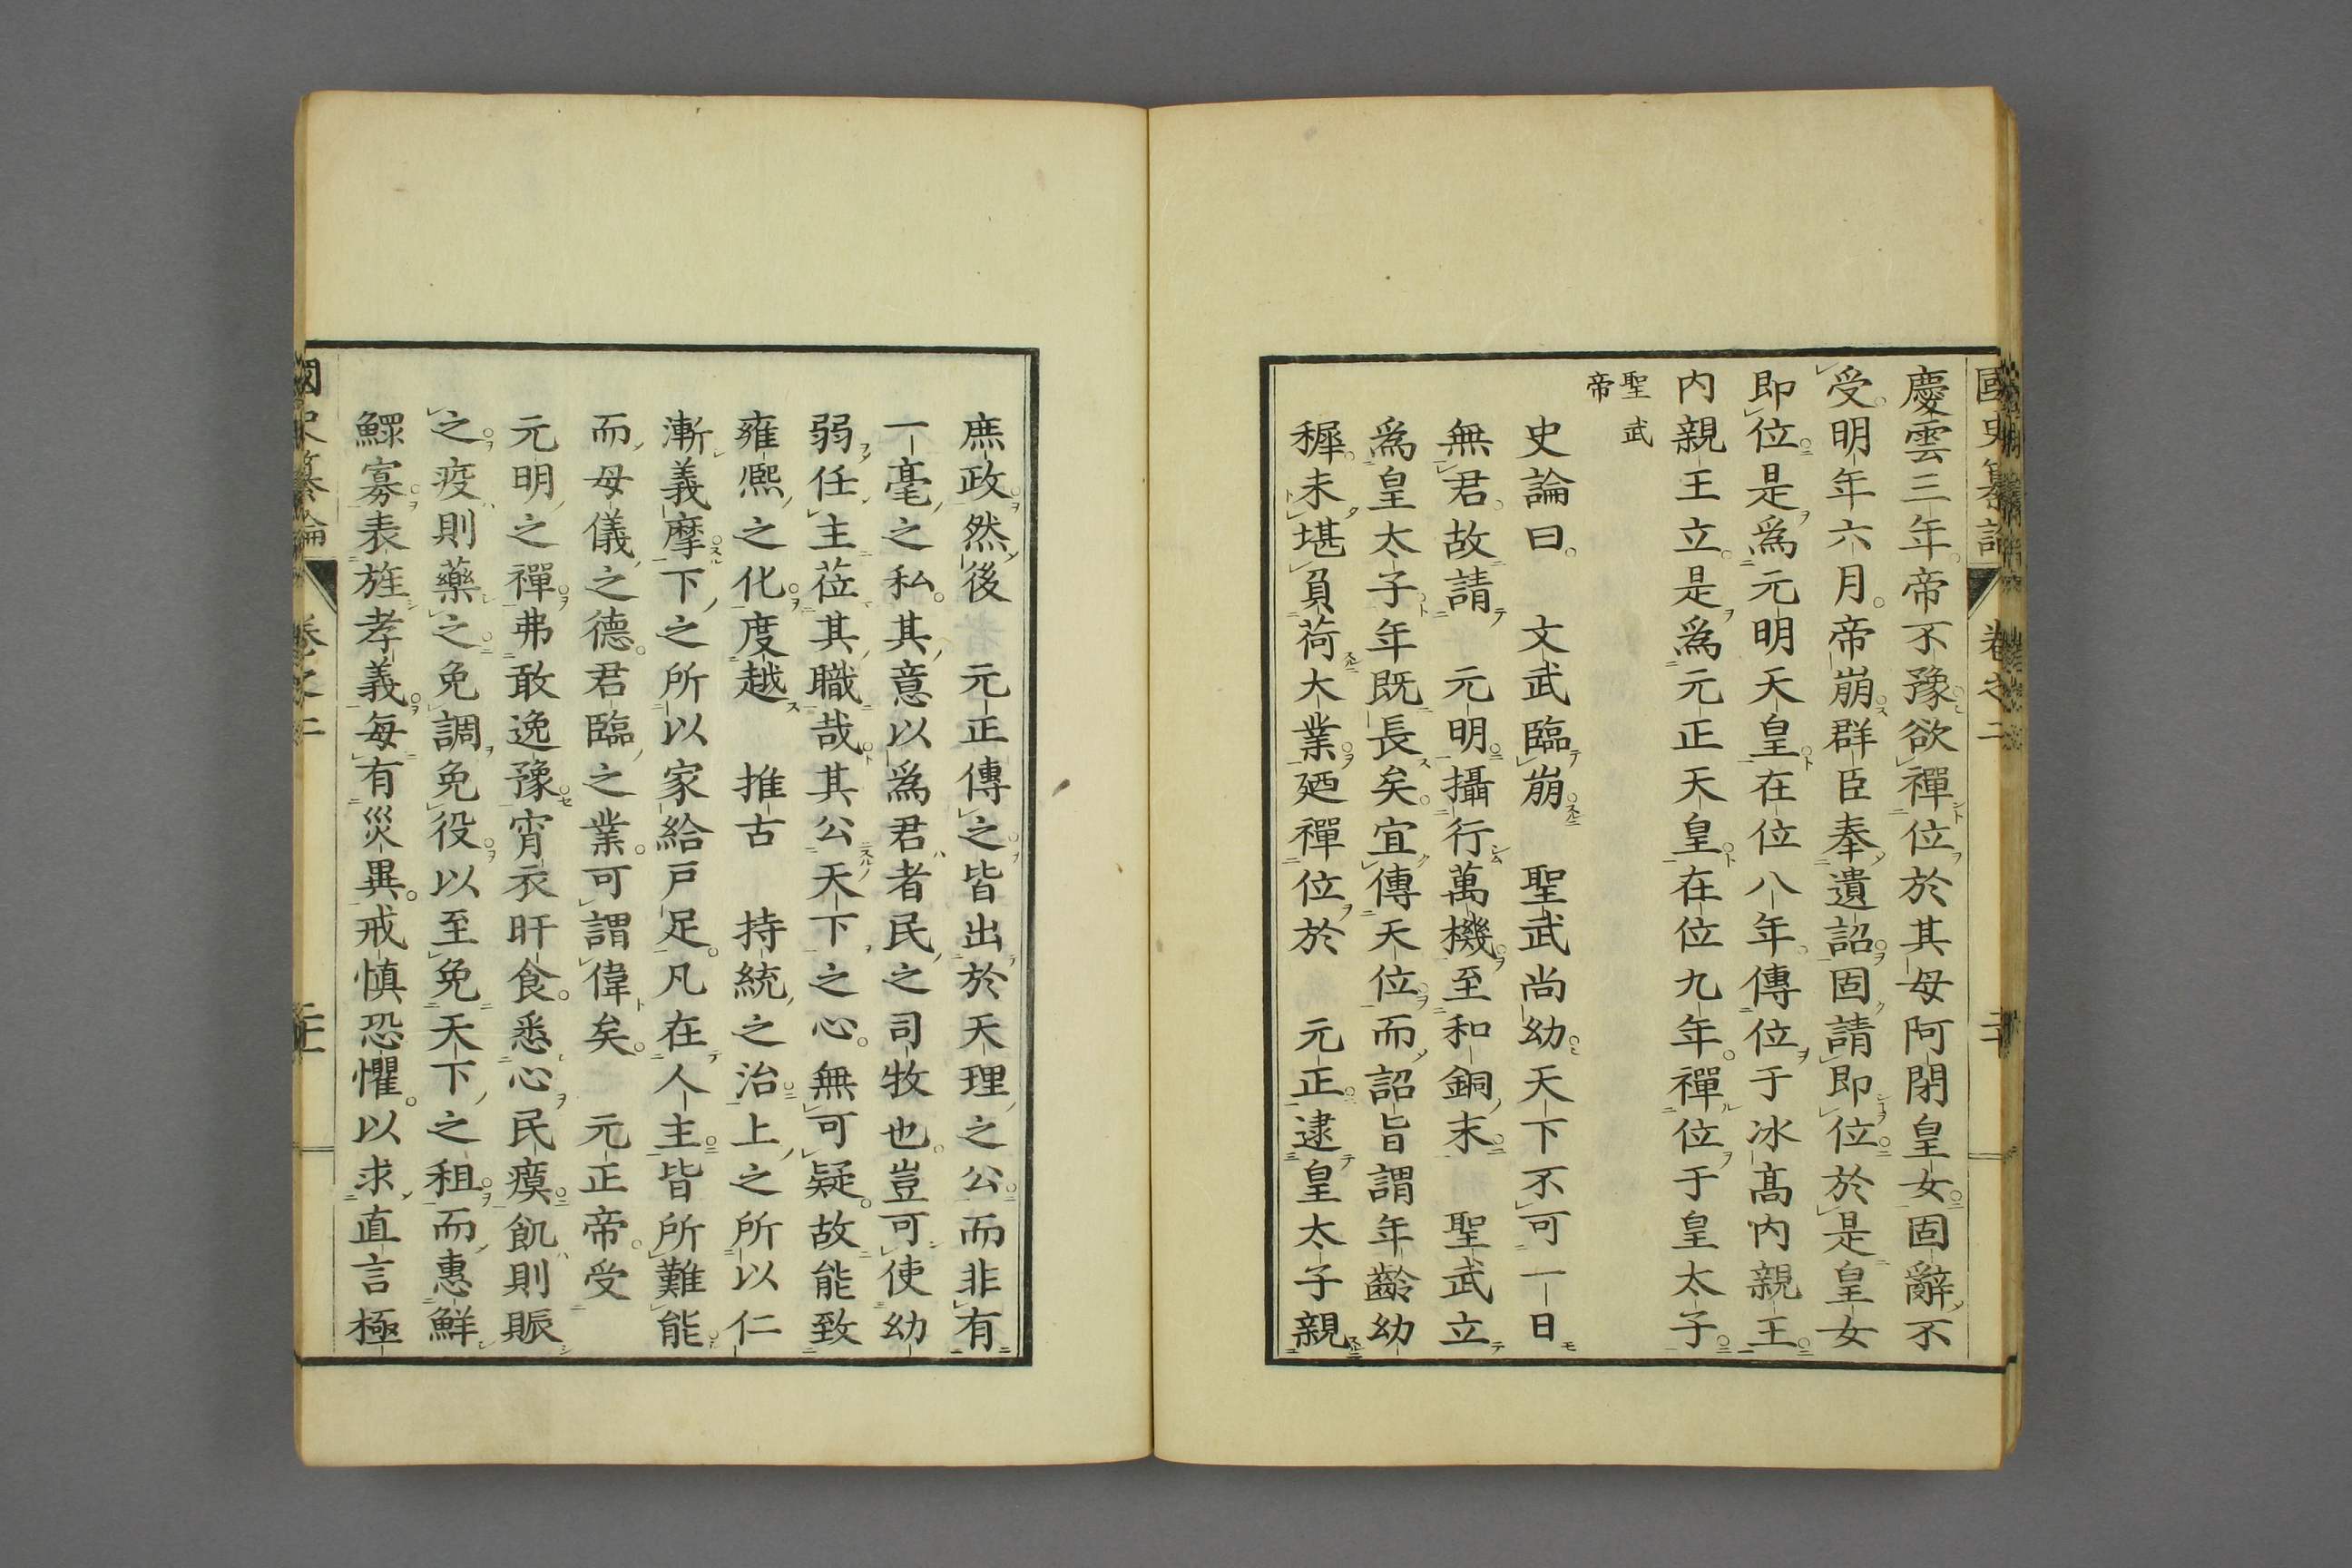 國史纂論 卷之二
慶雲三年帝不豫欲禪位於其母阿閇皇女固辭不
受明年六月帝崩群臣奉遺詔固請即位於是皇女
即位是爲元明天皇在位八年傳位于冰高内親王
内親王立是爲元正天皇在位九年禪位于皇太子
聖武
帝
史論曰 文武臨崩 聖武尚幼天下不可一日
無君故請 元明攝行萬機至和銅末 聖武立
爲皇太子年既長矣宜傳天位而詔旨謂年齡幼
穉未堪負荷大業廼禪位於 元正逮皇太子親
庶政然後 元正傳之皆出於天理之公而非有
一毫之私其意以爲君者民之司牧也豈可使幼
弱任主莅其職哉其公天下之心無可疑故能致
雍熈之化度越 推古 持統之治上之所以仁
漸義摩下之所以家給戸足凡在人主皆所難能
而母儀之德君臨之業可謂偉矣 元正帝受
元明之禪弗敢逸豫宵衣旰食悉心民瘼飢則賑
之疫則藥之免調免役以至免天下之租而惠鮮
鰥寡表旌孝義每有災異戒慎恐懼以求直言極
國史纂論 卷之二